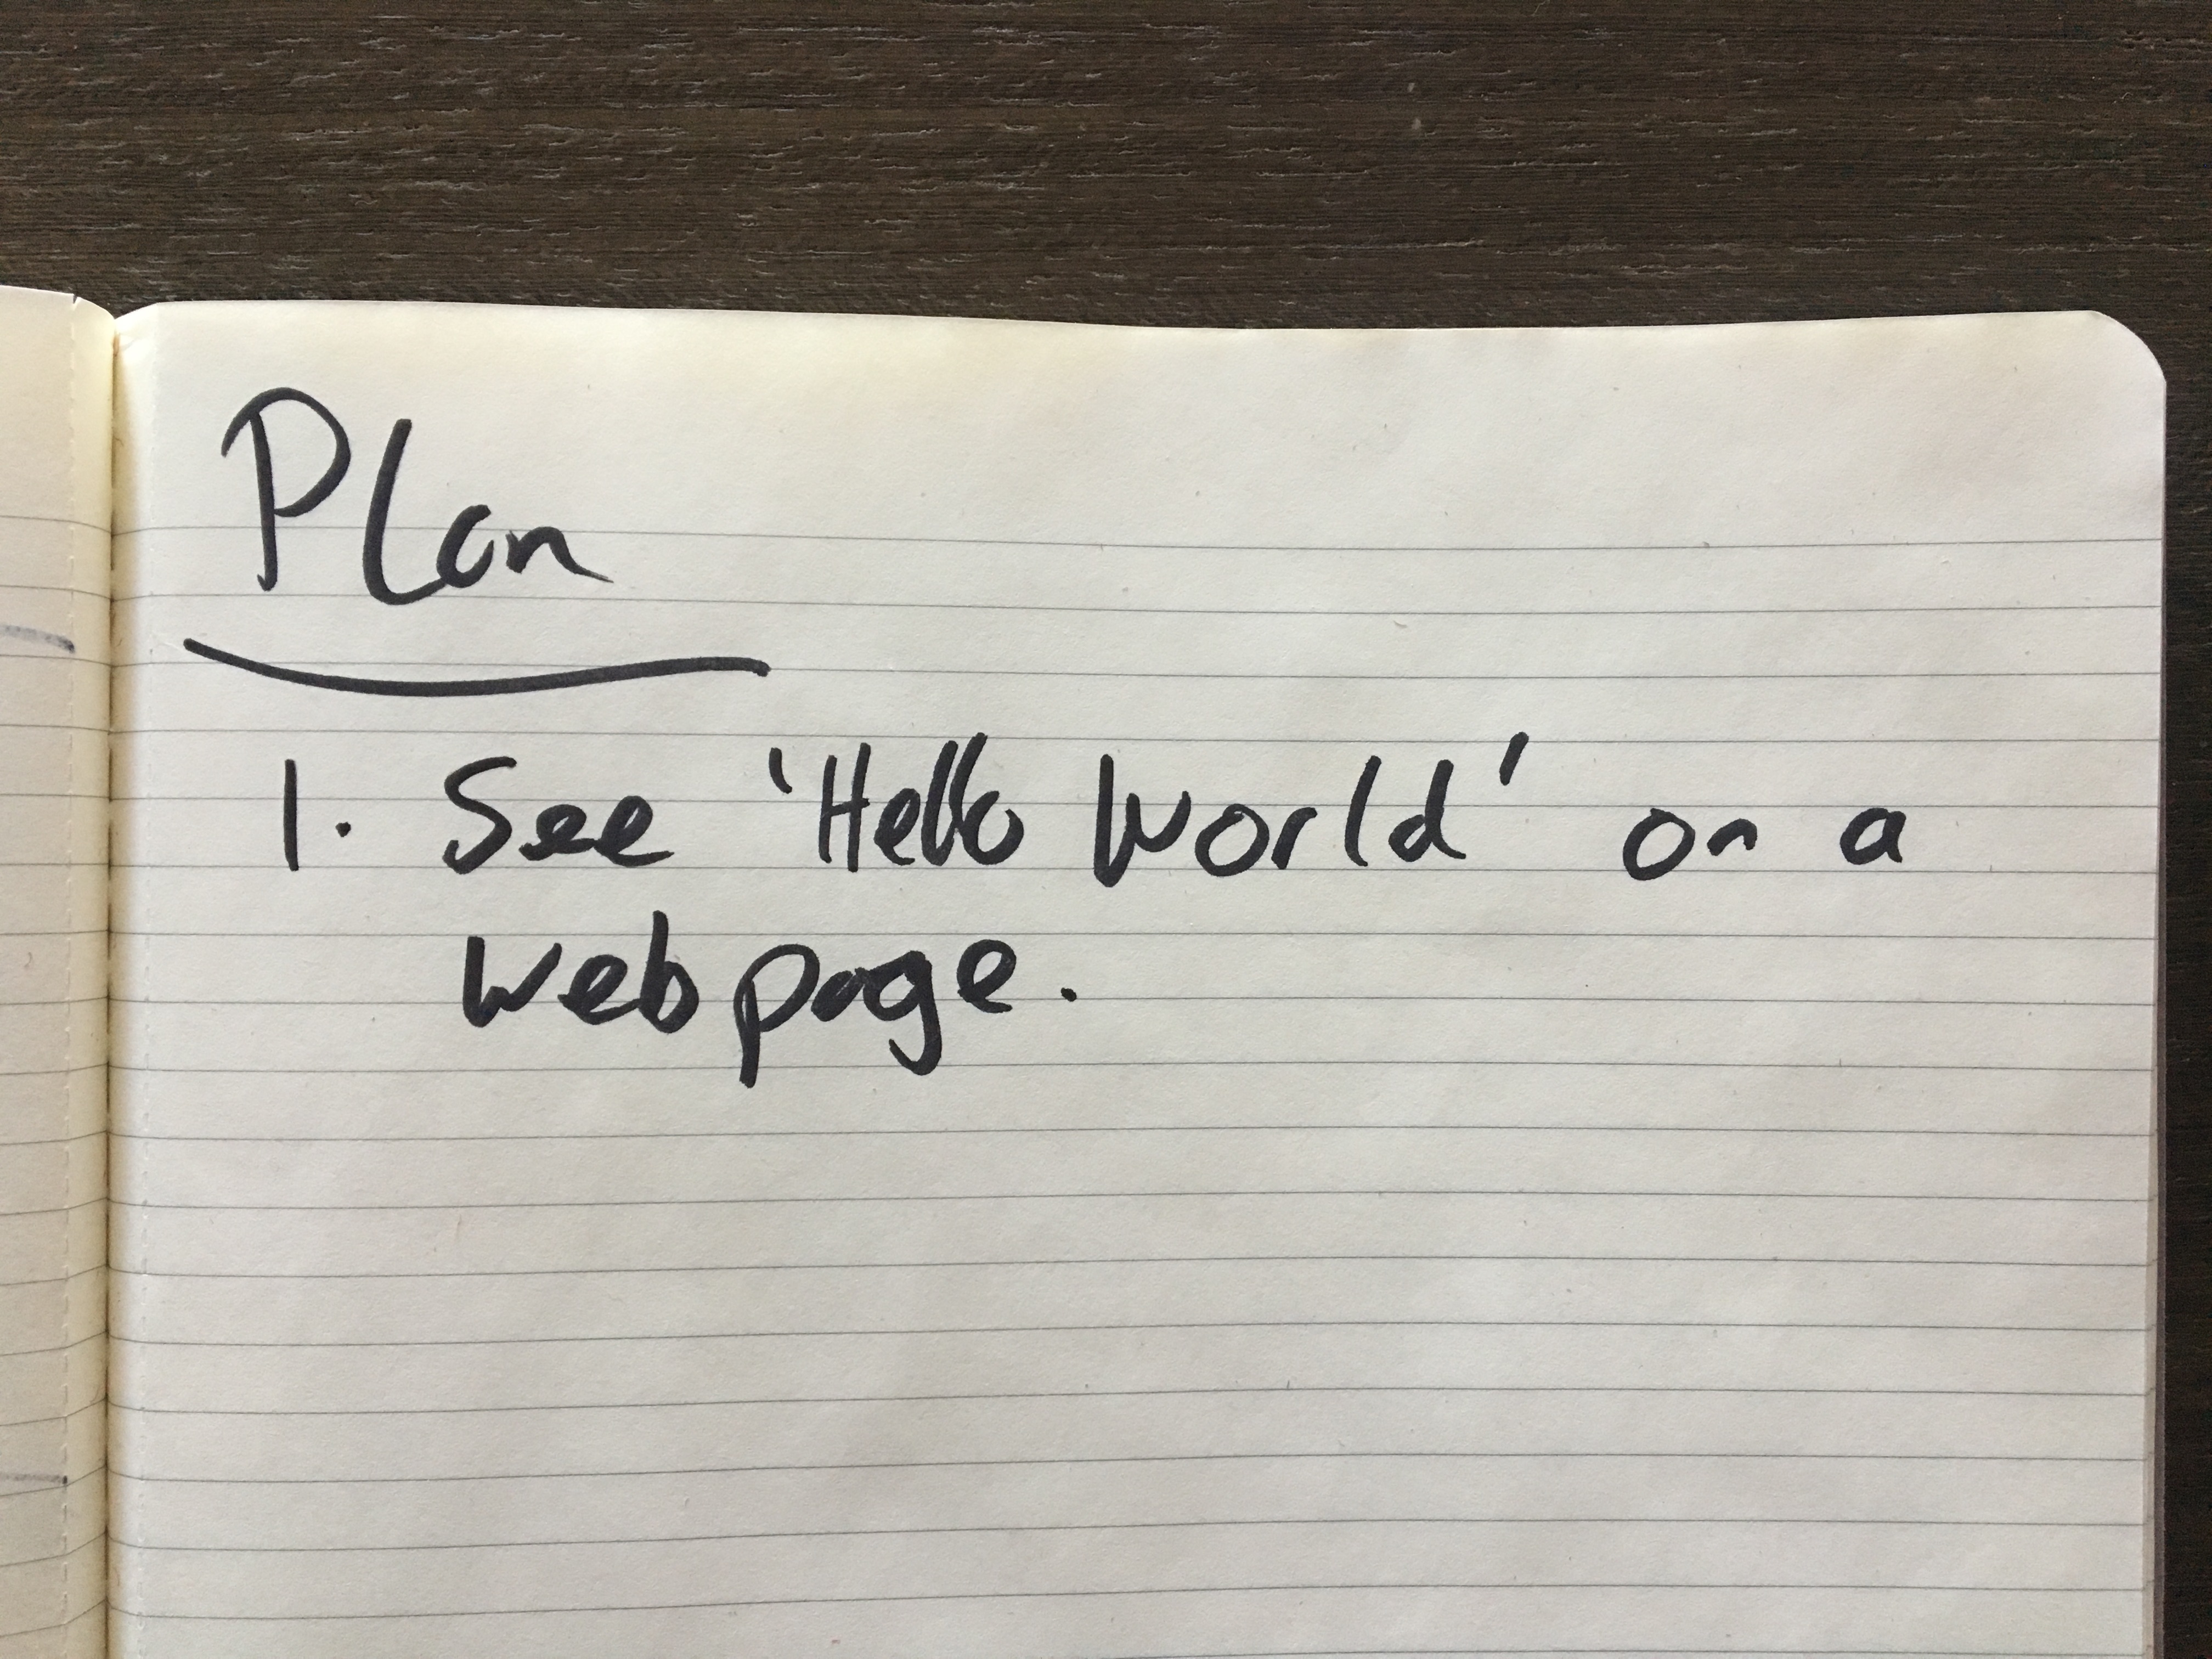 Plan
1. See 'Hello World' on a
webpage.